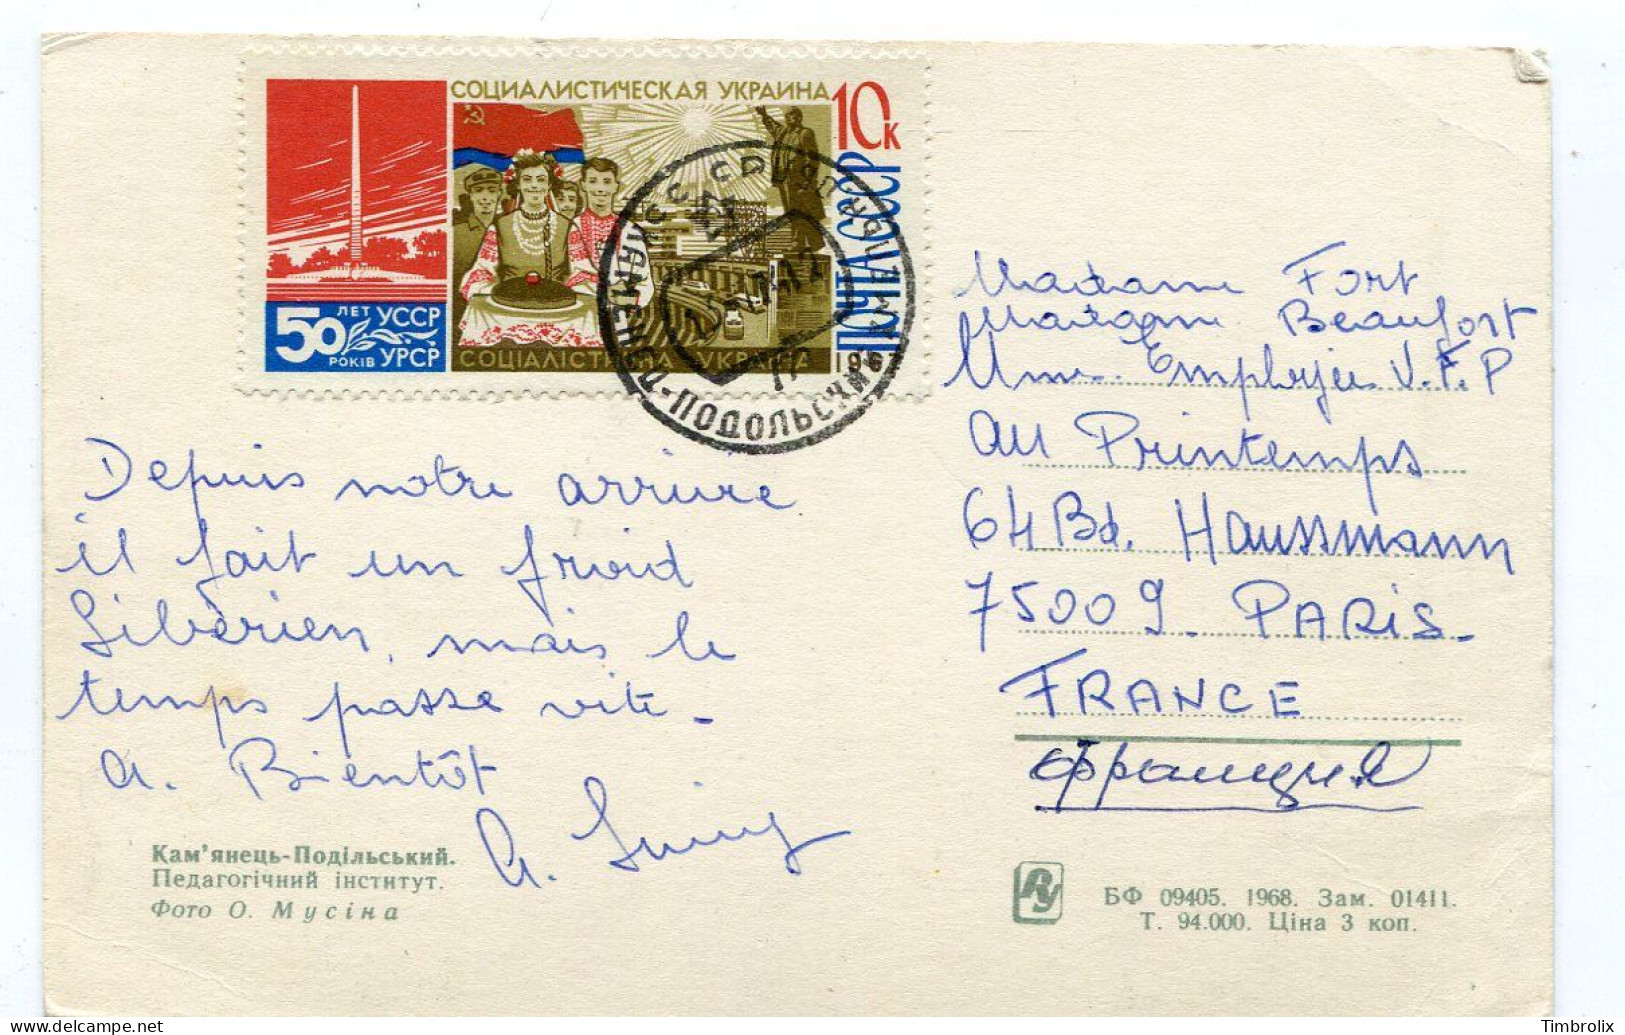 СОЦИАЛИСТИЧЕСКАЯ УКРАИНА
10к
ПОЧТА СССР
50 ЛЕТ УССР
РОКІВ УРСР
СОЦІАЛІСТИЧНА УКРАЇНА
1967
КАМЕНЕЦ-ПОДОЛЬСКИЙ
Depuis notre arrivée
il fait un froid
Sibèrien, mais le
temps passe vite -
A. Bientôt
Madame Fort
Madame Beaufort
Employées V.F.P
au Printemps
64 Bd. Haussmann
75009 - PARIS -
FRANCE
Франция
Кам'янець-Подільський.
Педагогічний інститут.
Фото О. Мусіна
БФ 09405. 1968. Зам. 01411.
Т. 94.000. Ціна 3 коп.
Timbrolix